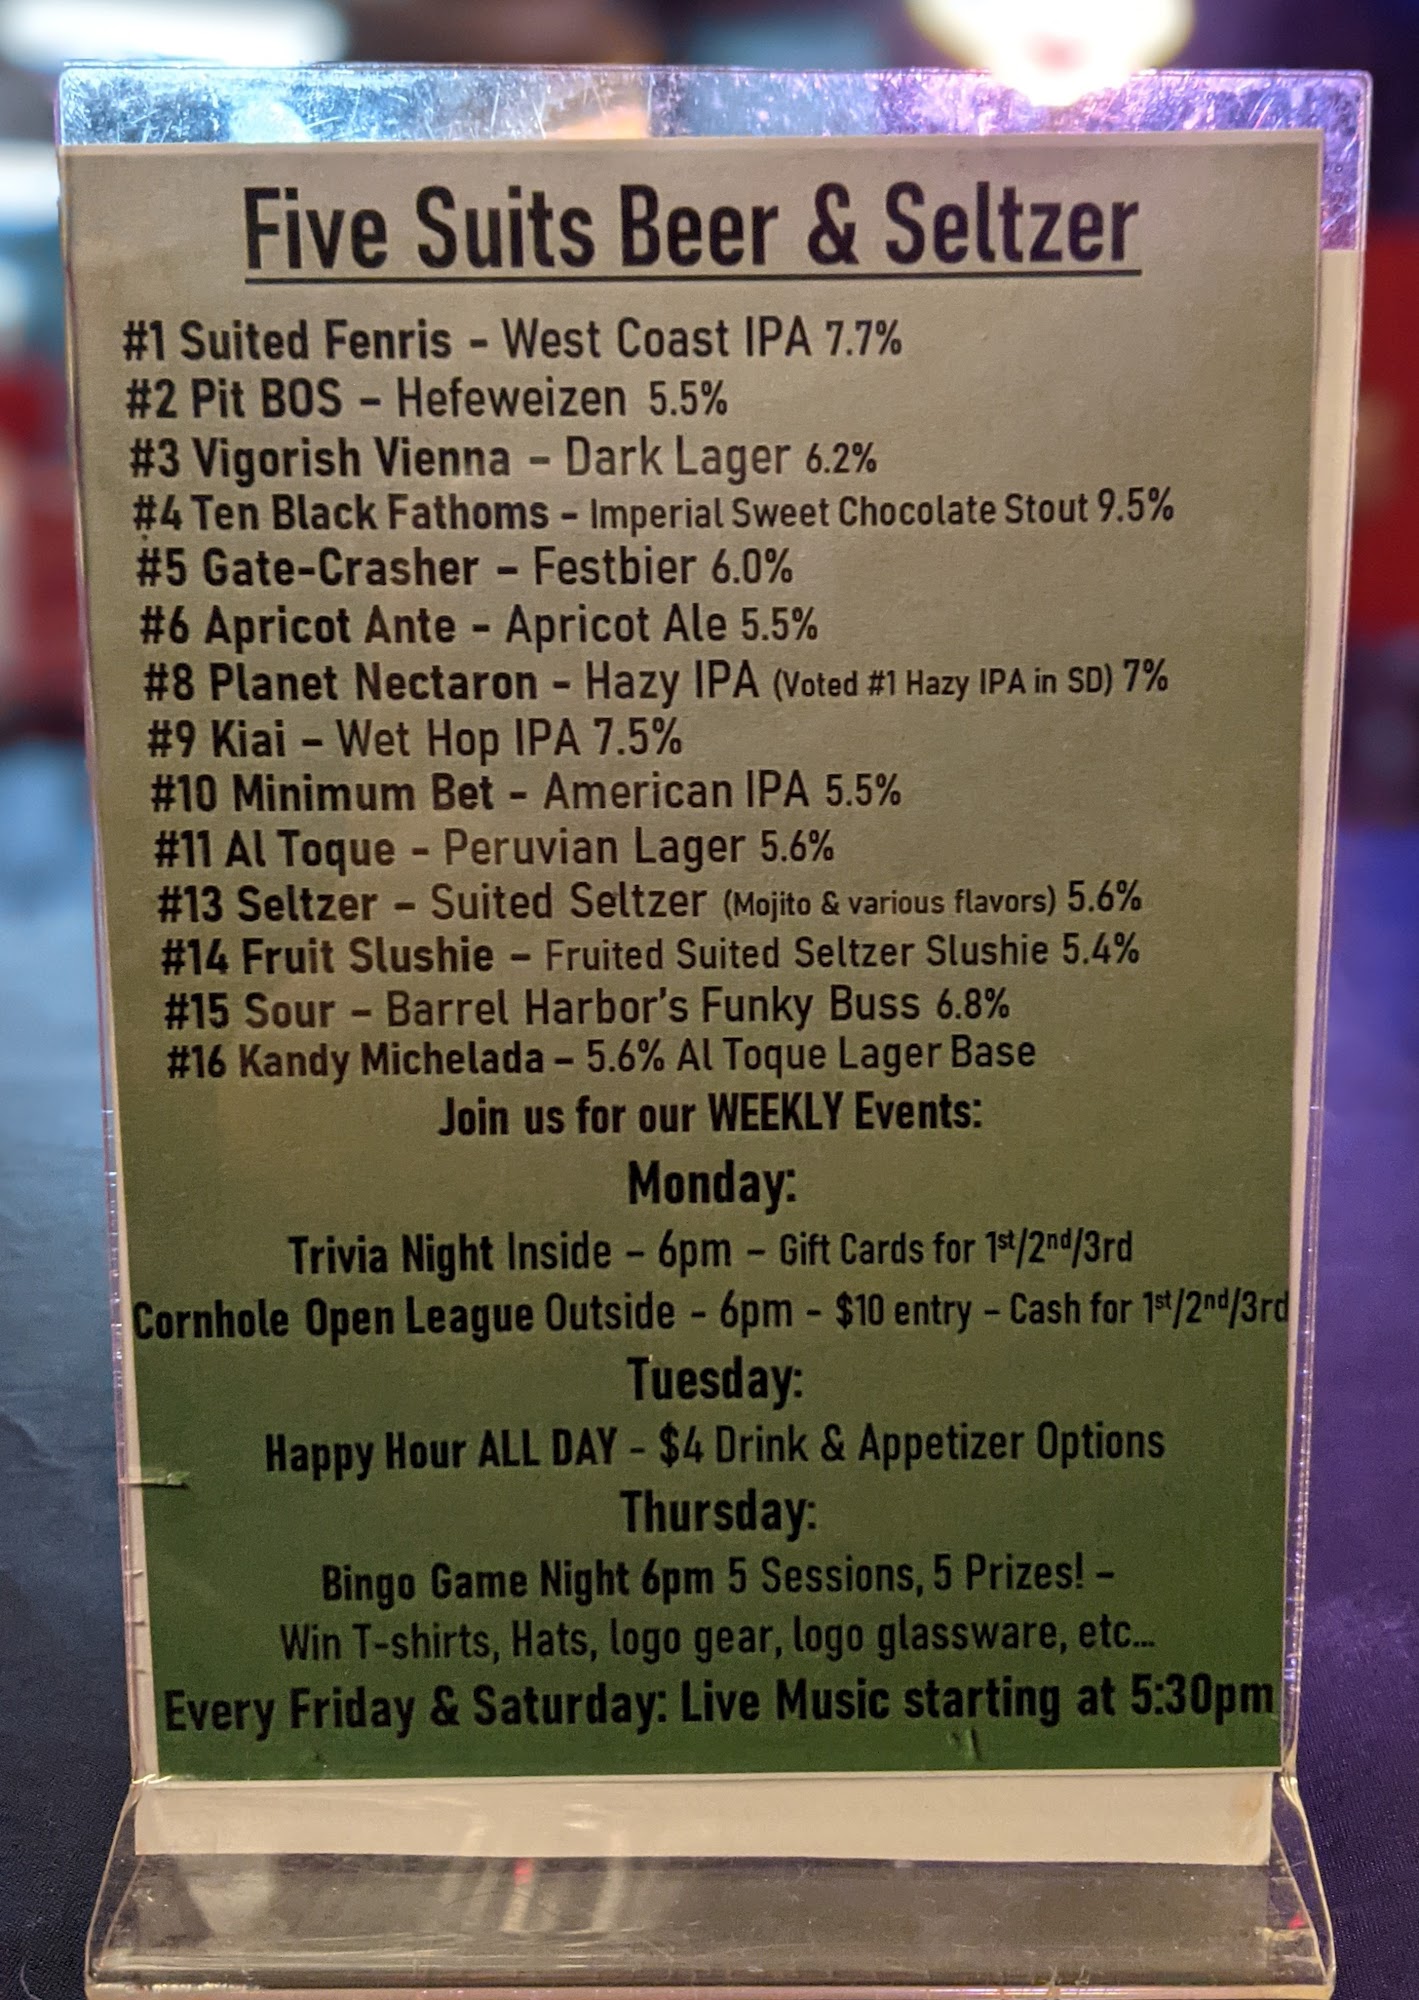 Five Suits Beer & Seltzer
#1 Suited Fenris - West Coast IPA 7.7%
#2 Pit BOS – Hefeweizen 5.5%
#3 Vigorish Vienna – Dark Lager 6.2%
#4 Ten Black Fathoms – Imperial Sweet Chocolate Stout 9.5%
#5 Gate-Crasher – Festbier 6.0%
#6 Apricot Ante - Apricot Ale 5.5%
#8 Planet Nectaron - Hazy IPA (Voted #1 Hazy IPA in SD) 7%
#9 Kiai – Wet Hop IPA 7.5%
#10 Minimum Bet - American IPA 5.5%
#11 Al Toque - Peruvian Lager 5.6%
#13 Seltzer – Suited Seltzer (Mojito & various flavors) 5.6%
#14 Fruit Slushie – Fruited Suited Seltzer Slushie 5.4%
#15 Sour – Barrel Harbor's Funky Buss 6.8%
#16 Kandy Michelada – 5.6% Al Toque Lager Base
Join us for our WEEKLY Events:
Monday:
Trivia Night Inside – 6pm – Gift Cards for 1st/2nd/3rd
Cornhole Open League Outside - 6pm - $10 entry – Cash for 1st/2nd/3rd
Tuesday:
Happy Hour ALL DAY - $4 Drink & Appetizer Options
Thursday:
Bingo Game Night 6pm 5 Sessions, 5 Prizes! –
Win T-shirts, Hats, logo gear, logo glassware, etc...
Every Friday & Saturday: Live Music starting at 5:30pm